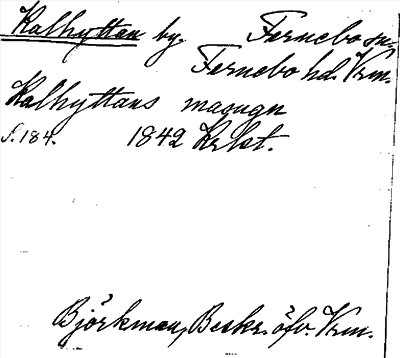 Kalhyttan by. Fernebo sn.
Fernebo hd. Vrm.
Kalhyttans masugn
S. 184. 1842 Krkt.
Björkman, Beskr. öfv. Vrm.